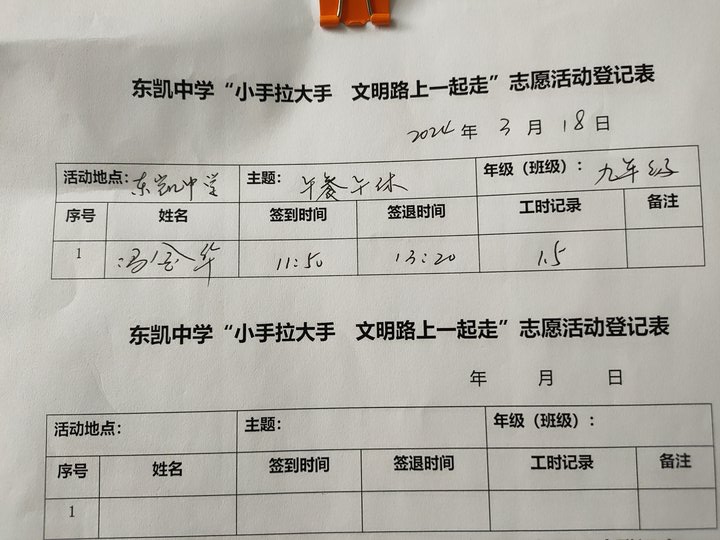 东凯中学“小手拉大手 文明路上一起走”志愿活动登记表
2024 年 3 月 18 日
活动地点：东凯中学 主题：午餐午休 年级（班级）：九年级
序号 姓名 签到时间 签退时间 工时记录 备注
1 冯金华 11:50 13:20 1.5
东凯中学“小手拉大手 文明路上一起走”志愿活动登记表
年 月 日
活动地点： 主题： 年级（班级）：
序号 姓名 签到时间 签退时间 工时记录 备注
1